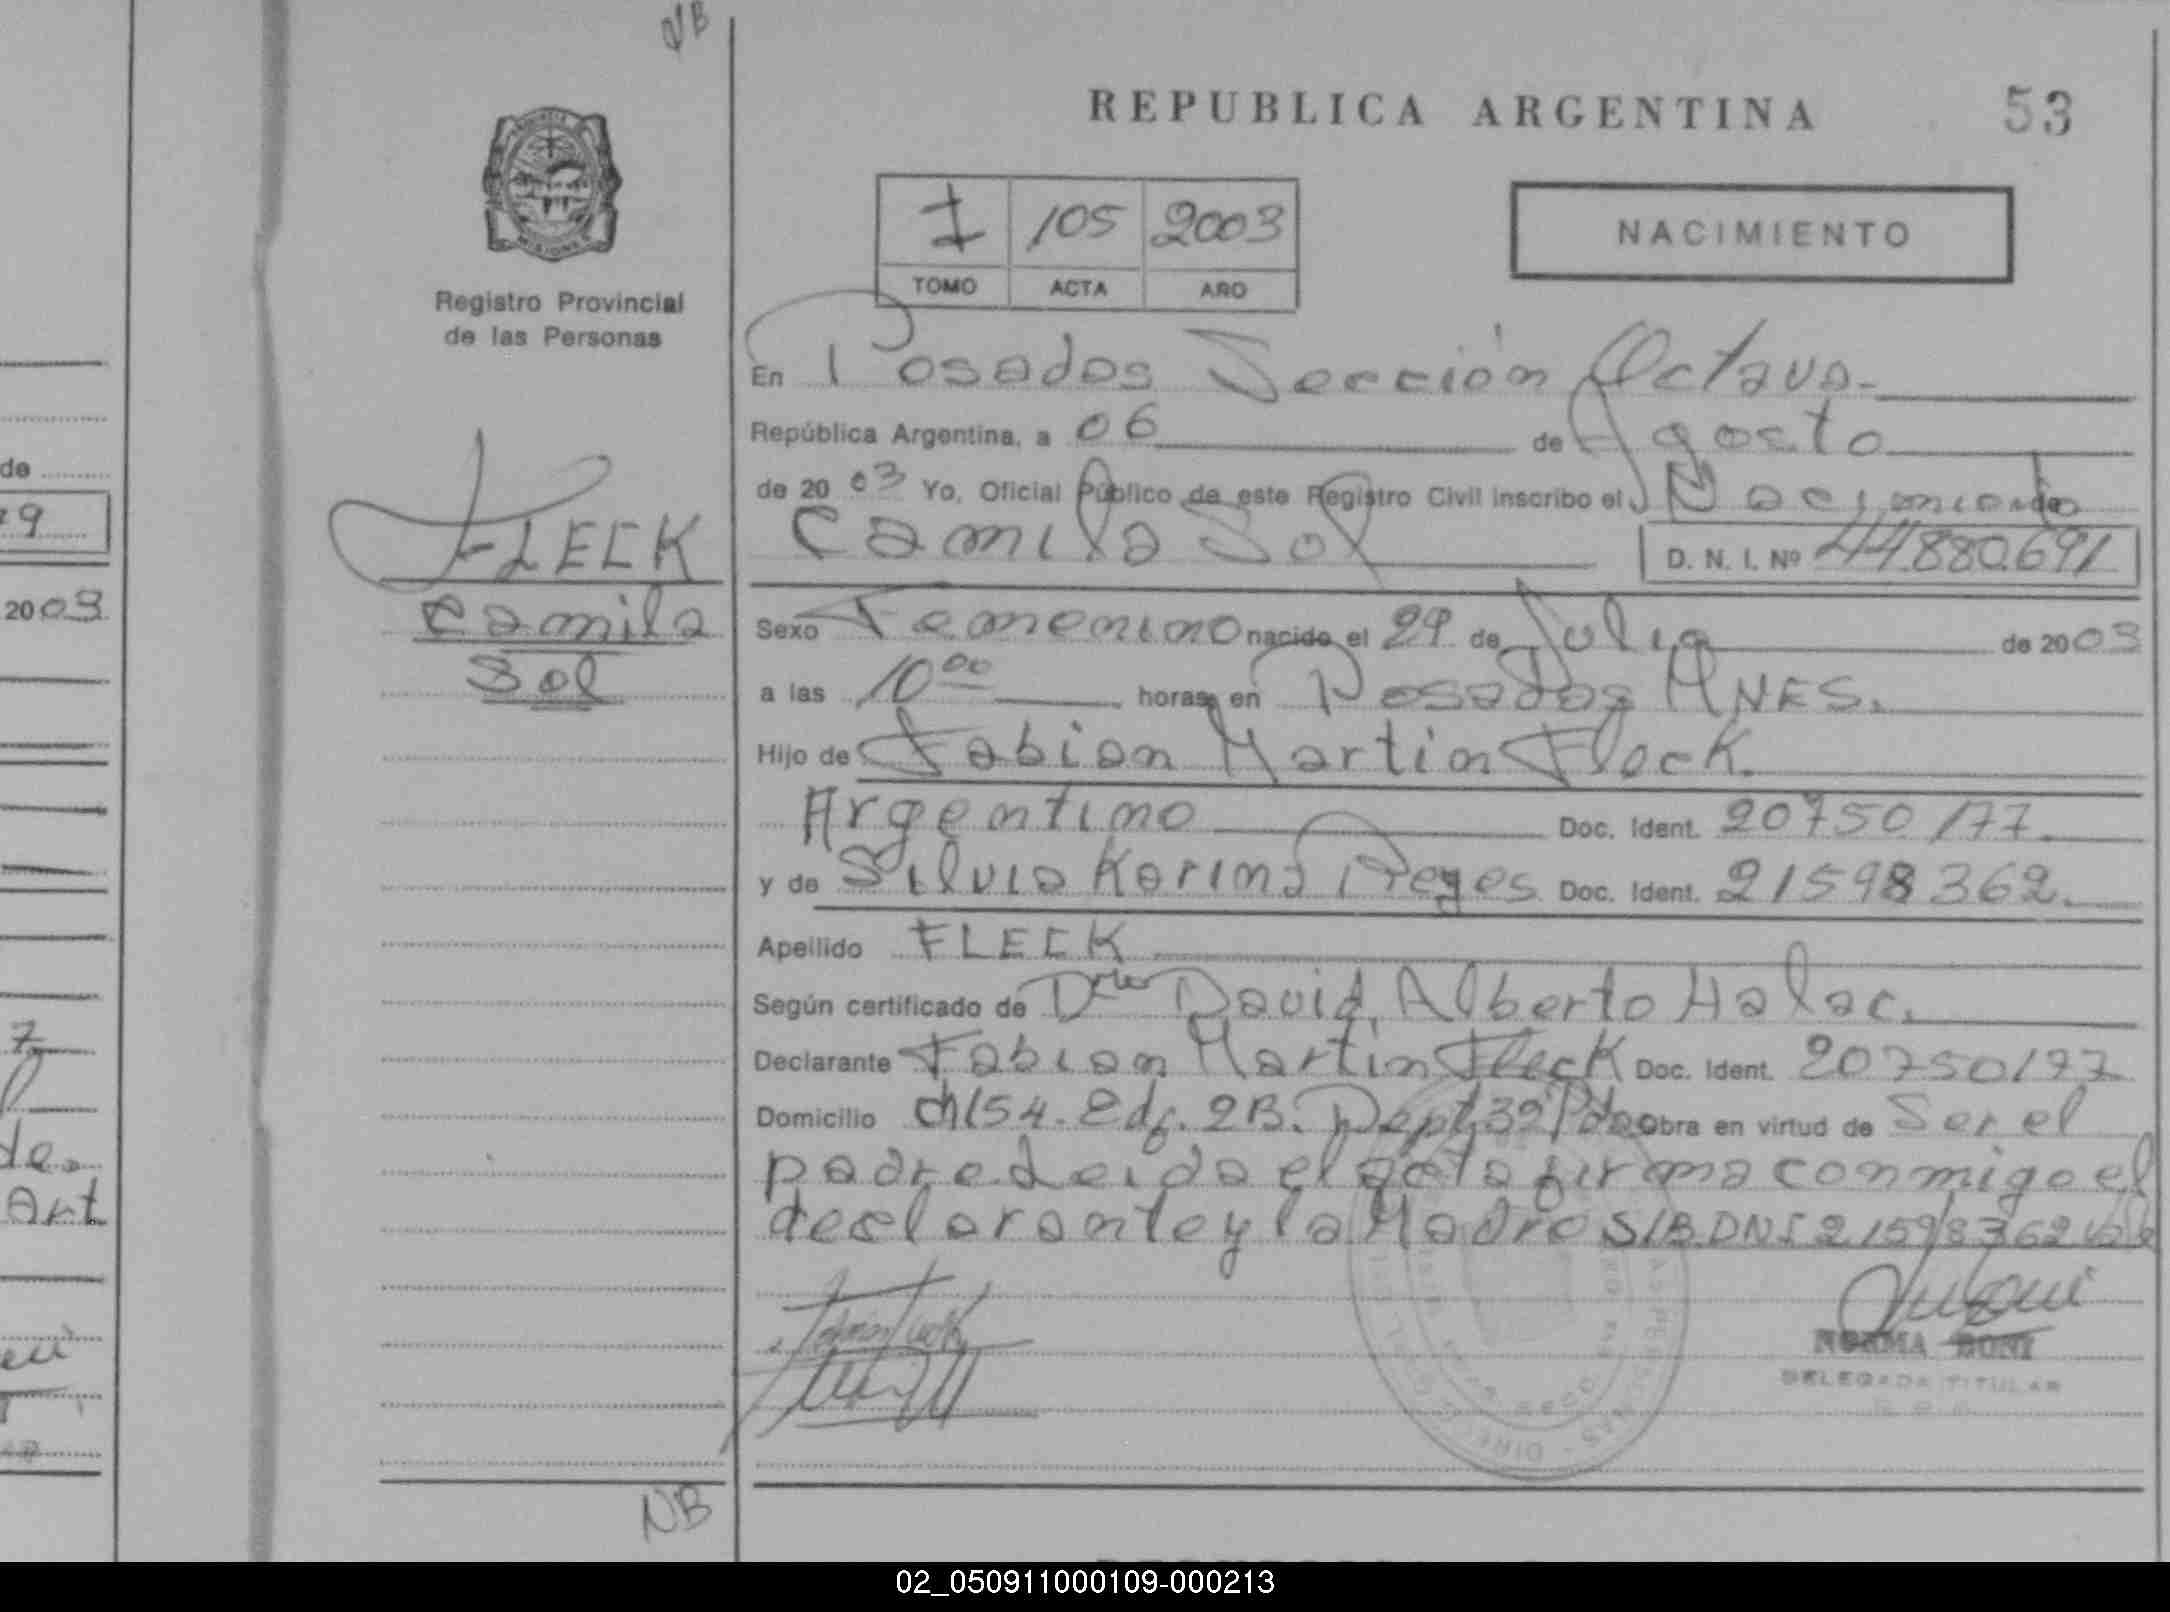 NB
REPUBLICA ARGENTINA
53
1 105 2003
TOMO ACTA AÑO
NACIMIENTO
Registro Provincial
de las Personas
FLECK
Camila
Sol
En Posadas Sección Octava.
República Argentina, a 06 de Agosto
de 2003 Yo, Oficial Público de este Registro Civil inscribo el Nacimiento de
Camila Sol
D. N. I. Nº 44.880.691
Sexo Femenino nacido el 29 de Julio de 2003
a las 10 00 horas en Posadas MNES.
Hijo de Fabian Martin Fleck.
Argentino Doc. Ident. 20750177.
y de Silvia Karina Reyes Doc. Ident. 21598362.
Apellido FLECK
Según certificado de David Alberto Halac.
Declarante Fabian Martin Fleck Doc. Ident. 20750177
Domicilio ch154. Edf. 2B. Dept 32 Pdas Obra en virtud de Ser el
padre Leida el acta firma conmigo el
declarante y la Madre S/B. DNI 21598362 Vale
NORMA BONI
DELEGADA TITULAR
NB
2003
de
Art
02_050911000109-000213